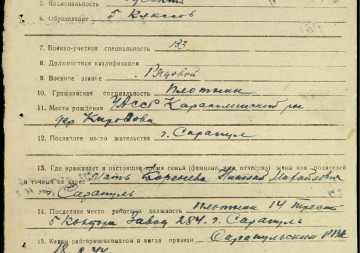 5. Национальность
6. Образование 5 классов
7. Военно-учетная специальность 133
8. Должностная квалификация
9. Военное звание Рядовой
10. Гражданская специальность Плотник
11. Место рождения УАССР Каракулинский р-н
дер.
12. Последнее место жительства г. Сарапул
13. Где проживает в настоящее время семья (фамилия, имя, отчество) жены или родителей
и точный Мать Николай Михайлович
г. Сарапуль
14. Последнее место работы и должность Плотник 14 Трест
5 Контора Завод 284 г. Сарапуль
15. Каким райгорвоенкоматом и когда призван Сарапульским РВК